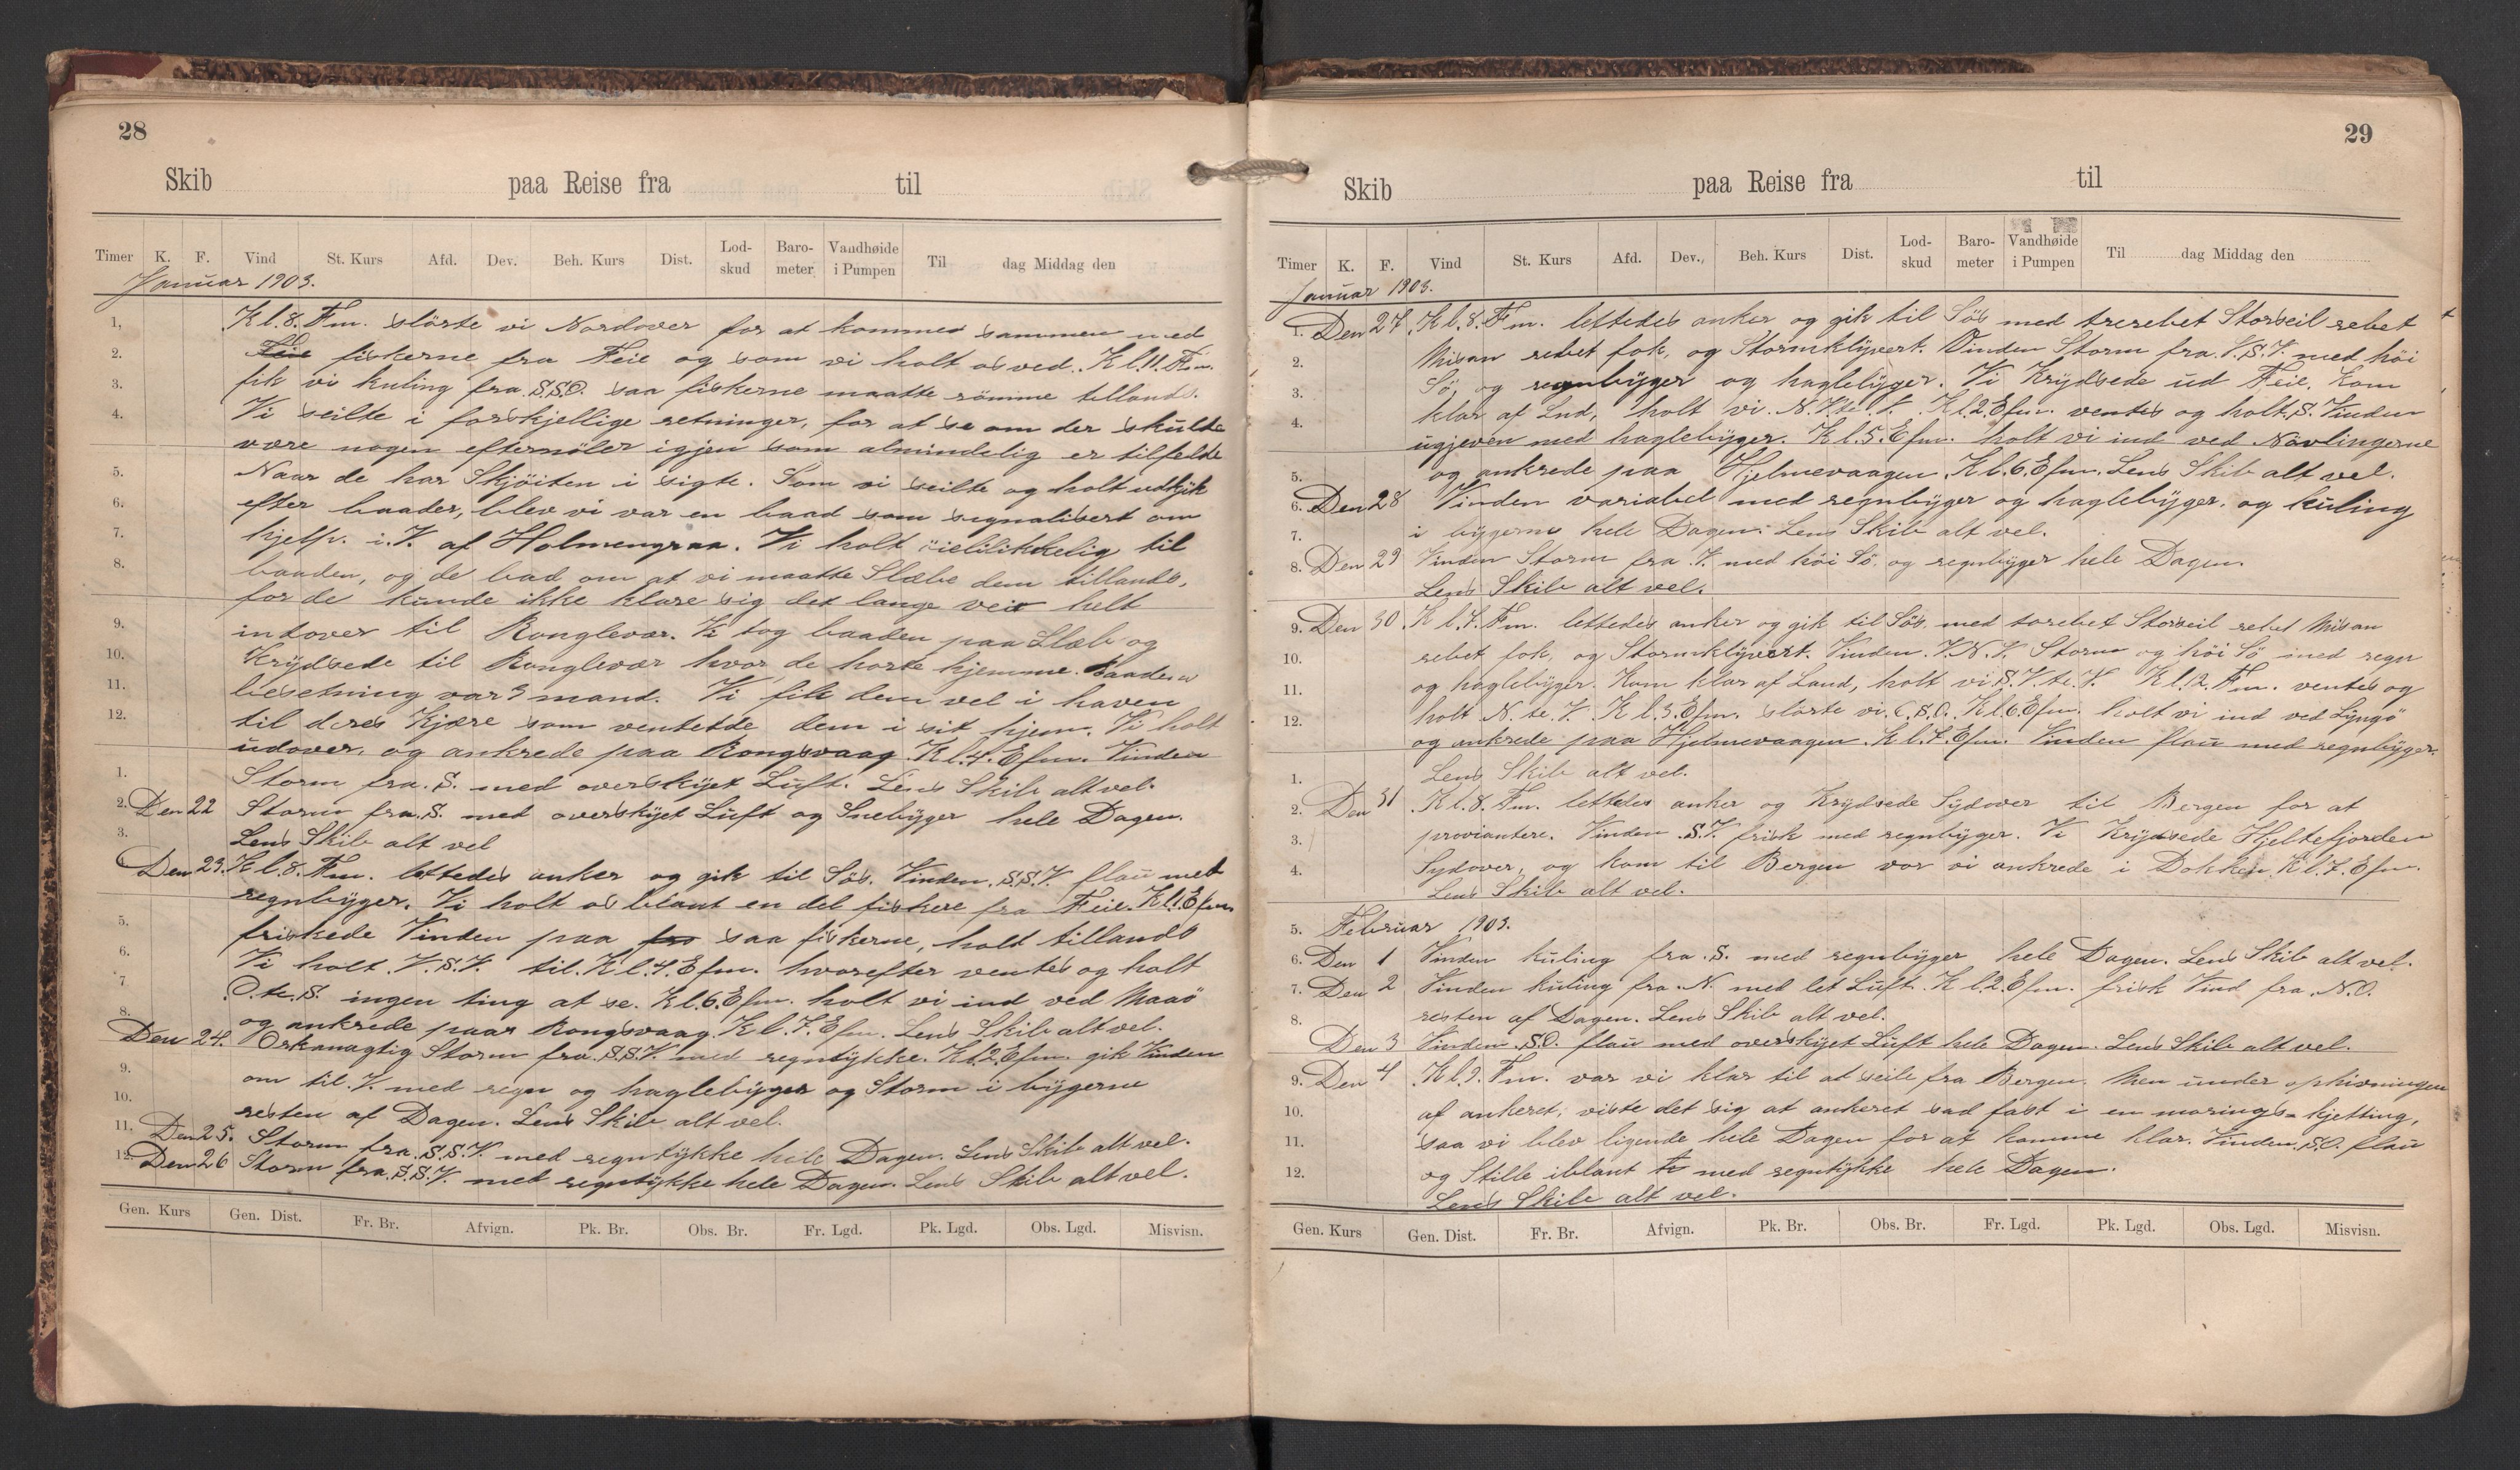 28
Skib paa Reise fra til
Timer K. F. Vind St. Kurs Afd. Dev. Beh. Kurs Dist. Lod-skud Baro-meter Vandhøide i Pumpen Til dag Middag den
Januar 1903.
Kl. 8. Fm. slörte vi Nordover for at kommer sammen med
Feie fiskerne fra Feie og som vi holt os ved. Kl. 11. Fm.
fik vi kuling fra S.S.O. saa fiskerne maatte römme tillands.
Vi seilte i forskjellige retninger, for at se om der skulde
være nogen efternöler igjen som almindelig er tilfelde
Naar de har Skjöiten i sigte. Som vi seilte og holt udkjik
efter baader, blev vi var en baad som segnalisert om
hjelp. i. V. af Holmengraa. Vi holt öieblikkelig til
baaden, og de bad om at vi maatte Slæbe dem tillands,
for de kunde ikke klare sig det lange veir helt
indover til Ronglevær. Vi tog baaden paa Slæb og
Krydsede til Ronglevær hvor de horte hjemme. Baadens
besetning var 3 mand. Vi fik dem vel i haven
til deres Kjære som ventetde dem i sit hjem. Vi holt
udover, og ankrede paa Rongsvaag Kl. 4. Efm. Vinden
Storm fra. S. med overskyet Luft. Lens Skib alt vel.
Den 22 Storm fra. S. med overskyet Luft og Snebyger hele Dagen.
Lens Skib alt vel
Den 23. Kl. 8. Fm. lettedes anker og gik til Søs. Vinden. S.S.V. flau med
regnbyger. Vi holt os blant en del fiskere fra Feie. Kl. 1. Efm
friskede Vinden paa fra saa fiskerne, holt tillands
Vi holt. V.S.V. til. Kl. 4. Efm. hvorefter ventes og holt
O. te. S. ingen ting at se. Kl. 6. Efm. holt vi ind ved Maaö
og ankrede paar Rongsvaag. Kl. 7. Efm. Lens Skib alt vel.
Den 24. Orkanagtig Storm fra. S.S.V. med regntykke. Kl. 2. Efm. gik Vinden
om til. V. med regn og haglebyger og Storm i bygerne
resten af Dagen. Lens Skib alt vel.
Den 25. Storm fra. S.S.V. med regntykke hele Dagen. Lens Skib alt vel.
Den 26 Storm fra. S.S.V. med regntykke hele Dagen. Lens Skib alt vel.
Gen. Kurs Gen. Dist. Fr. Br. Afvign. Pk. Br. Obs. Br. Fr. Lgd. Pk. Lgd. Obs. Lgd. Misvisn.
29
Skib paa Reise fra til
Timer K. F. Vind St. Kurs Afd. Dev. Beh. Kurs Dist. Lod-skud Baro-meter Vandhøide i Pumpen Til dag Middag den
Januar 1903.
1. Den 27. Kl. 8. Fm. lettedes anker og gik til Søs med trerebet Storseil rebet
2. Misan rebet fok, og Stormklyvert. Vinden Storm fra. V.S.V. med höi
3. Sö, og regnbyger og haglebyger. Vi Krydsede ud Feie. Kom
4. klar af Lnd, holt vi. N.V. te. V. Kl. 2. Efm. ventes og holt. S. Vinden
ugjeven med haglebyger. Kl. 5. Efm. holt vi ind ved Nävlingerne
5. og ankrede paa Hjelmevaagen. Kl. 6. Efm. Lens Skib alt vel.
6. Den 28 Vinden variabel med regnbyger og haglebyger, og kuling
7. i bygerne hele Dagen. Lens Skib alt vel.
8. Den 29 Vinden Storm fra. V. med höi Sö. og regnbyger hele Dagen.
Lens Skib alt vel.
9. Den 30. Kl. 7. Fm. lettedes anker og gik til Søs. med torebet Storseil rebet Misan
10. rebet fok, og Stormklyvert. Vinden. V.N.V. Storm og höi Sö med regn
11. og haglebyger. Kom klar af Land, holt vi S.V. te. V. Kl. 12. Fm. ventes og
12. holt N. te. V. Kl. 3. Efm. slörte vi. O.S.O. Kl. 6. Efm. holt vi ind ved Lyngö
og ankrede paa Hjelmevaagen. Kl. 7. Efm. Vinden flau med regnbyger.
1. Lens Skib alt vel.
2. Den 31 Kl. 8. Fm. lettedes anker og Krydsede Sydover til Bergen for at
3. proviantere. Vinden. S.V. frisk med regnbyger. Vi Krydsede Hjeltefjorden
4. Sydover, og kom til Bergen vor vi ankrede i Dokken. Kl. 7. Efm.
Lens Skib alt vel.
5. Februar 1903.
6. Den 1 Vinden kuling fra. S. med regnbyger hele Dagen. Lens Skib alt vel.
7. Den 2 Vinden kuling fra. N. med let Luft. Kl. 2. Efm. frisk Vind fra. N.O.
8. resten af Dagen. Lens Skib alt vel.
Den 3 Vinden. S.O. flau med overskyet Luft hele Dagen. Lens Skib alt vel.
9. Den 4 Kl. 9. Fm. var vi klar til at seile fra Bergen. Men under ophivningen
10. af ankeret, viste det sig at ankeret sad fast i en morings-kjetting,
11. saa vi blev ligende hele Dagen for at komme klar. Vinden. S.O. flau
12. og Stille iblant med regntykke hele Dagen.
Lens Skib alt vel.
Gen. Kurs Gen. Dist. Fr. Br. Afvign. Pk. Br. Obs. Br. Fr. Lgd. Pk. Lgd. Obs. Lgd. Misvisn.